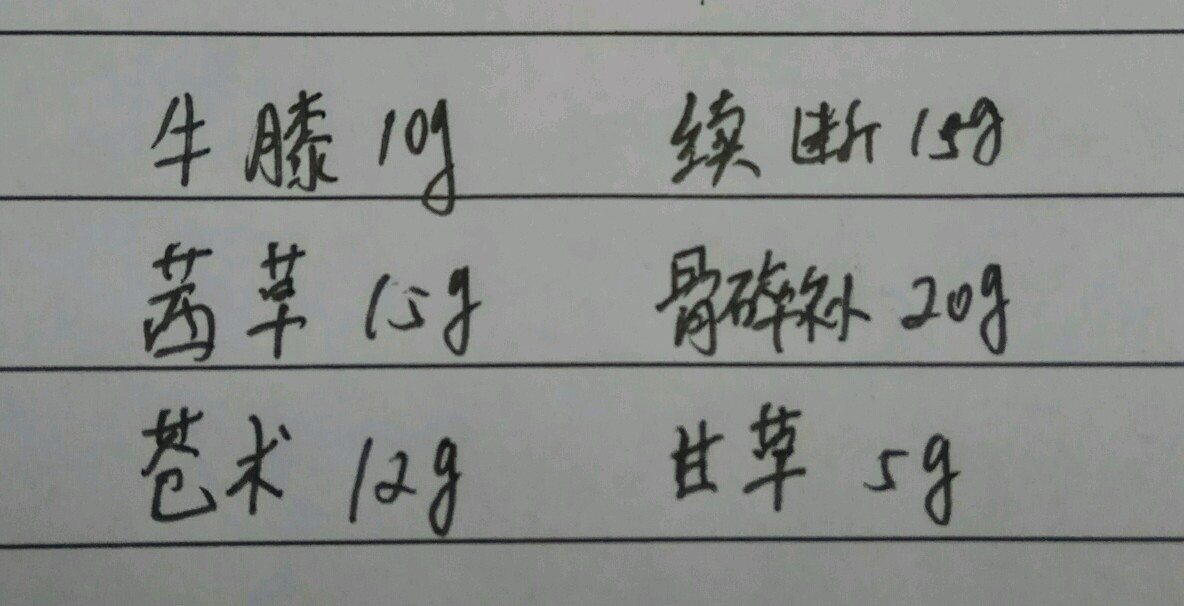 牛膝 10g 续断 15g
茜草 15g 骨碎补 20g
苍术 12g 甘草 5g